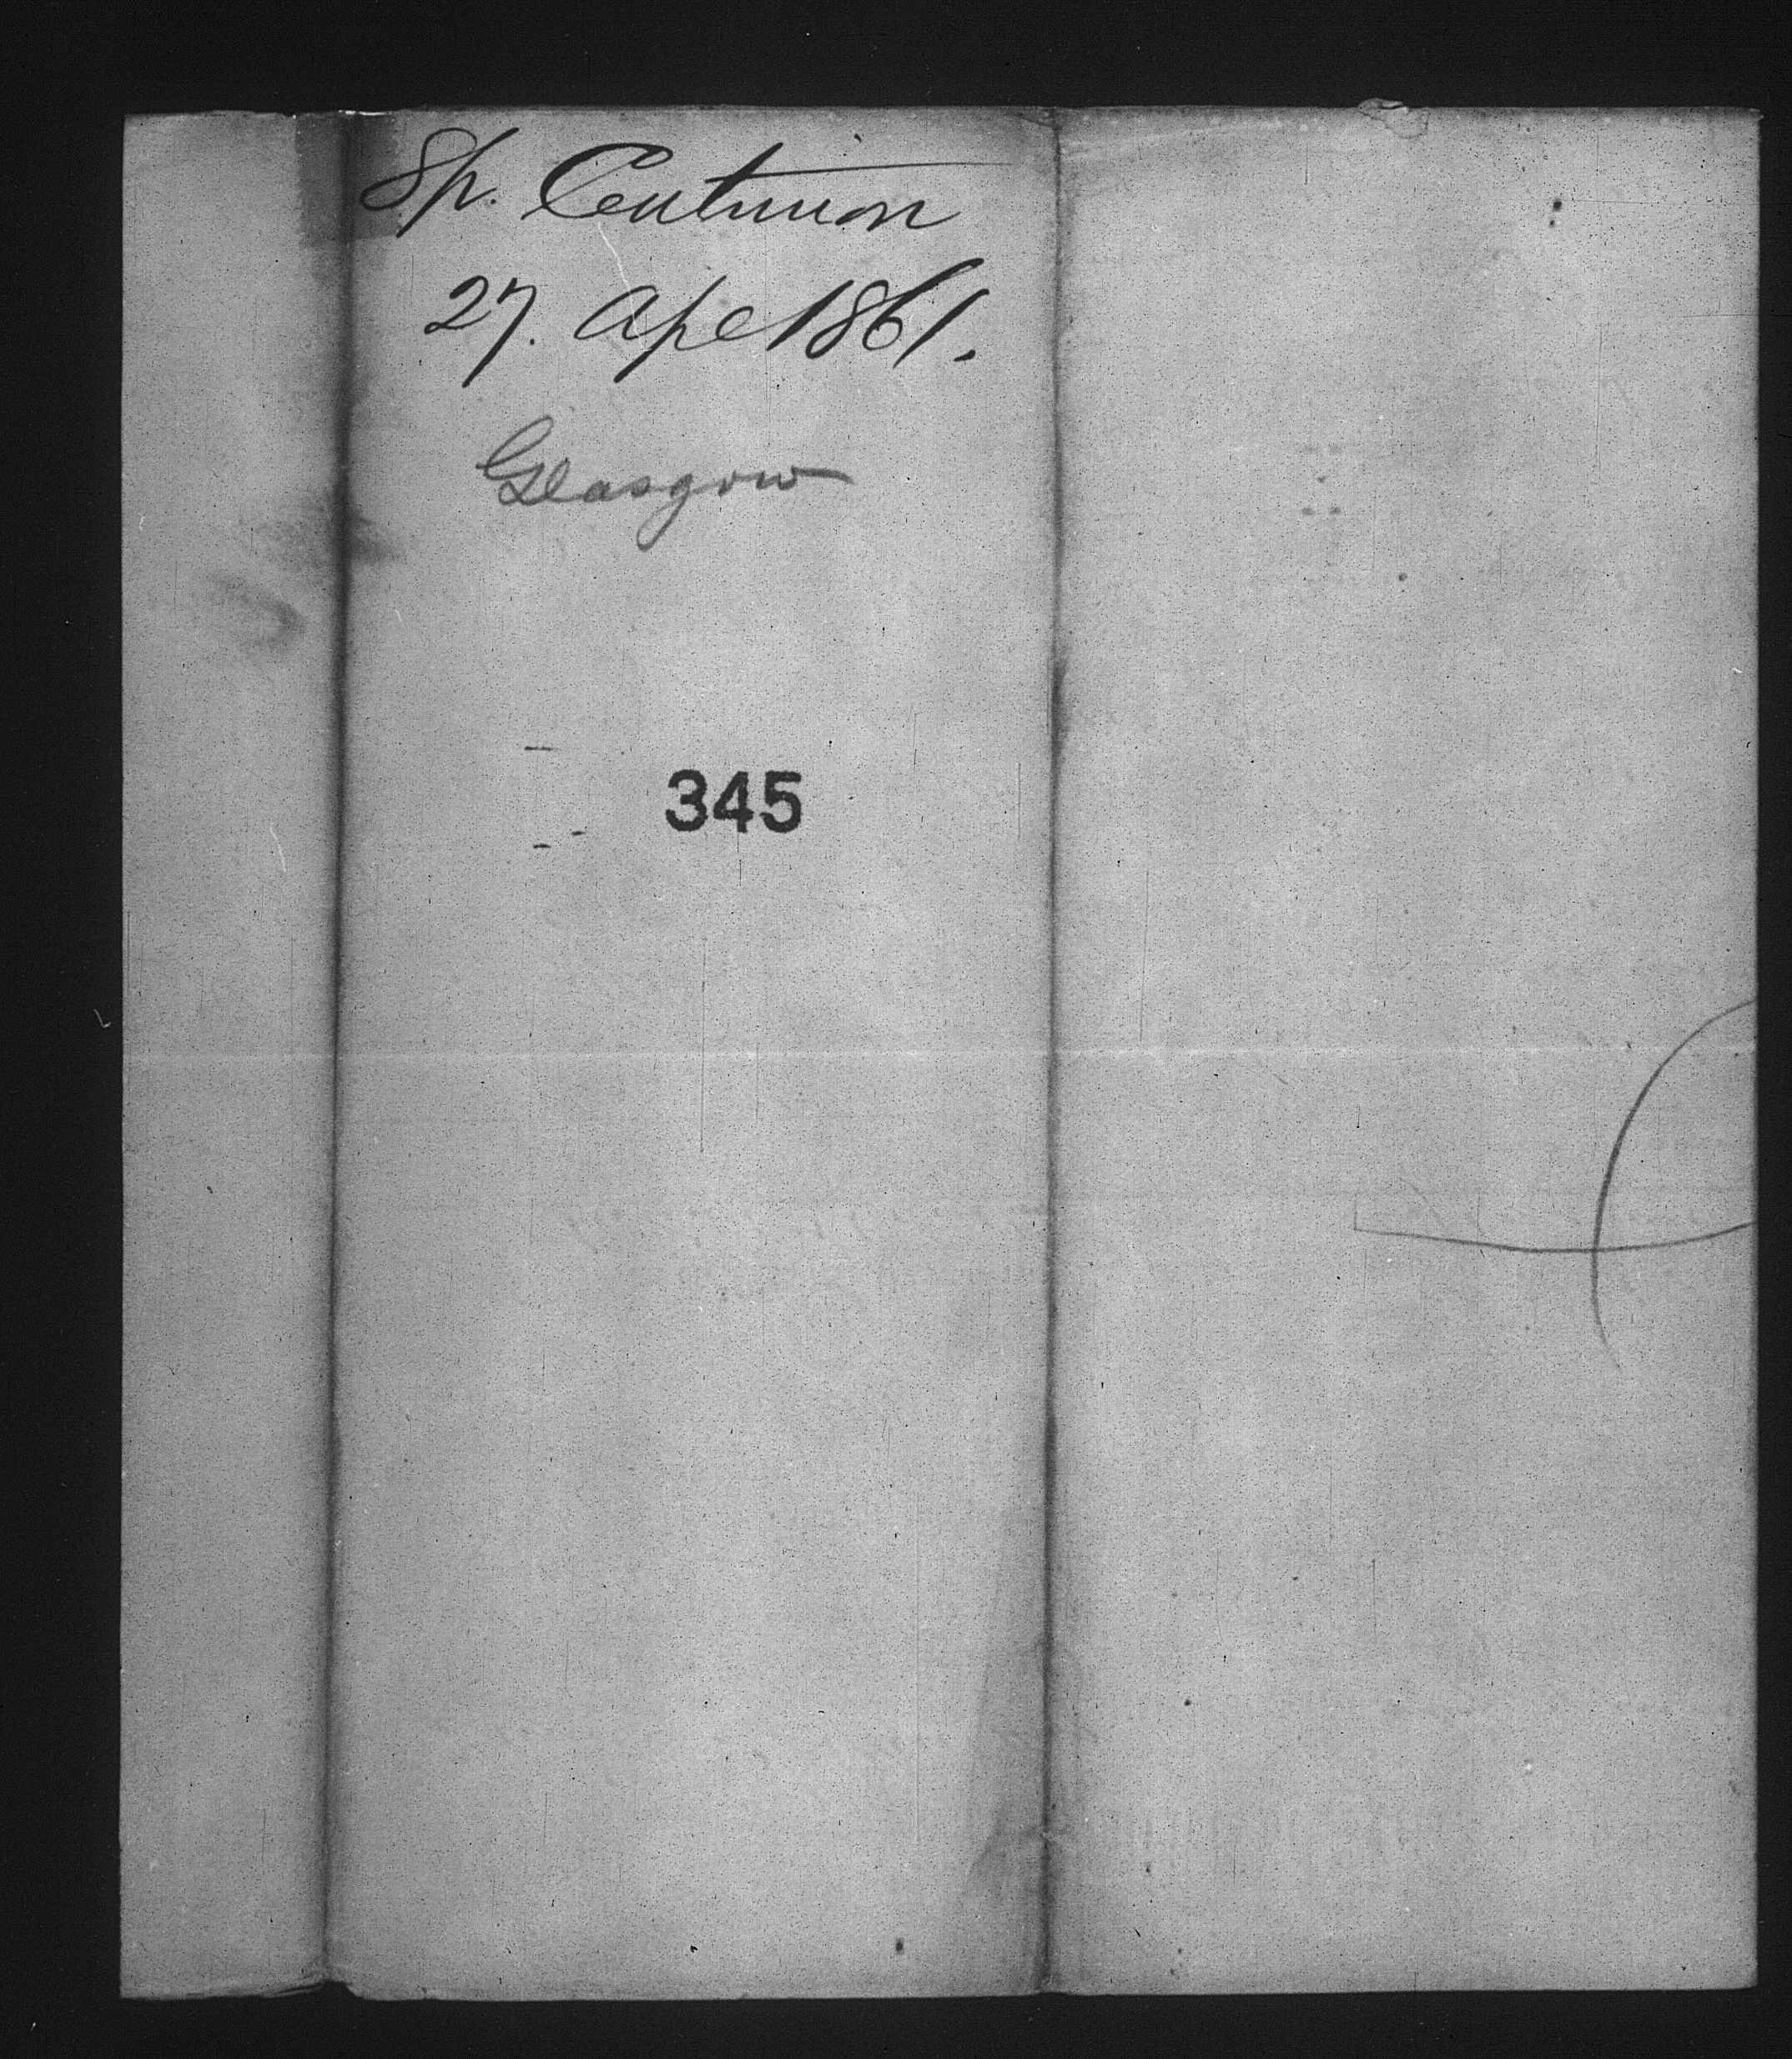 Sp. Centurion
27. Apl 1861.
Glasgow
345